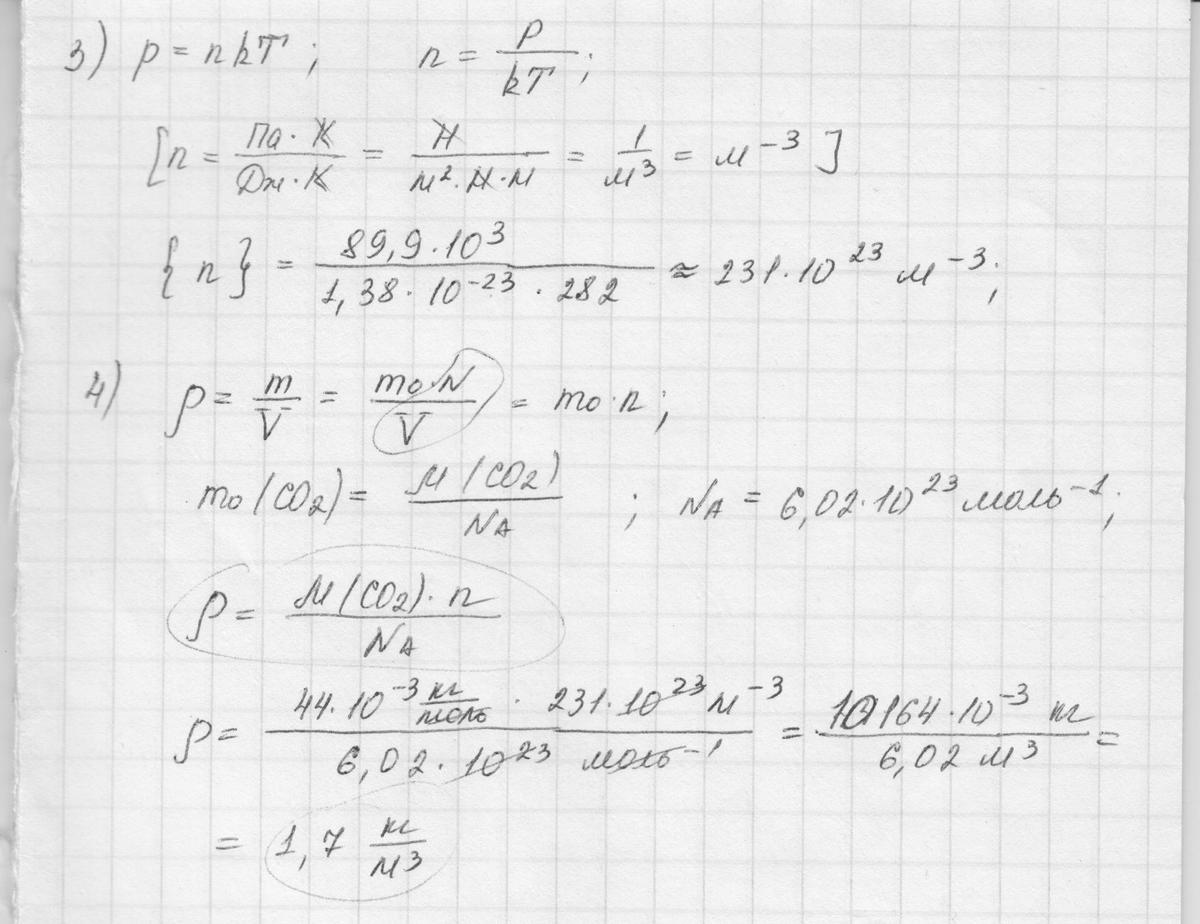 3) p = nkT ; n = p/kT ;
[n = Па·К/Дж·К = Н/м²·Н·м = 1/м³ = м⁻³]
{n} = 89,9·10³/1,38·10⁻²³·282 ≈ 231·10²³ м⁻³;
4) ρ = m/V = m₀N/V = m₀·n;
m₀(CO₂) = M(CO₂)/N_A ; N_A = 6,02·10²³ моль⁻¹;
ρ = M(CO₂)·n/N_A
ρ = 44·10⁻³ кг/моль · 231·10²³ м⁻³/6,02·10²³ моль⁻¹ = 10164·10⁻³ кг/6,02 м³ =
= 1,7 кг/м³